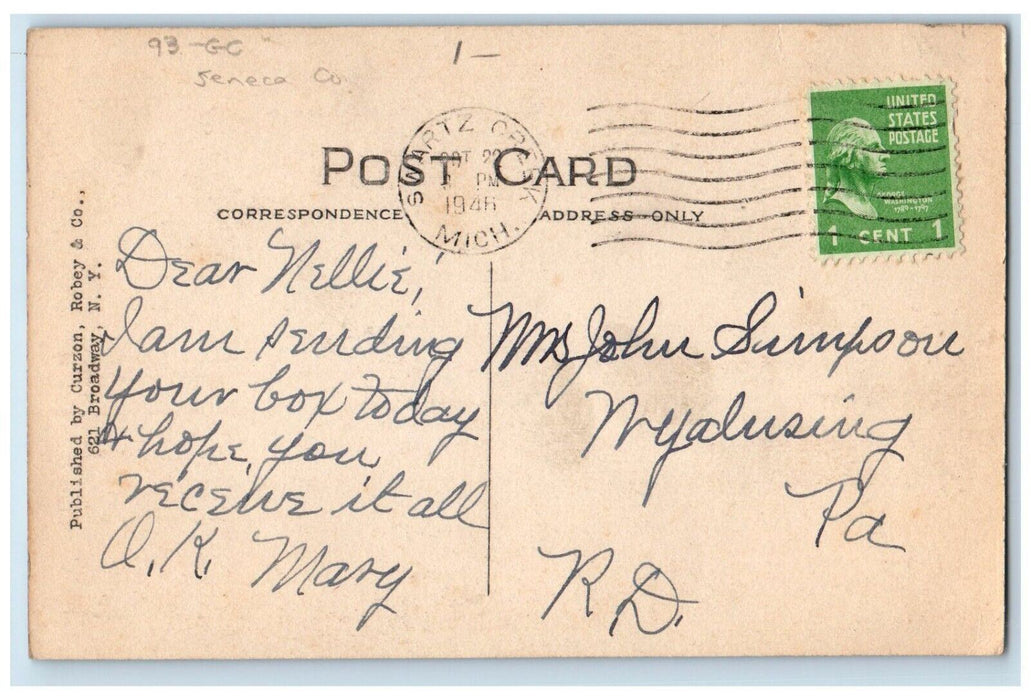 93-GC
1-
Seneca Co.
UNITED
STATES
POSTAGE
GEORGE
WASHINGTON
1789-1797
1 CENT 1
SWARTZ CREEK
OCT 22
PM
1946
MICH.
POST CARD
CORRESPONDENCE
ADDRESS ONLY
Published by Curzon, Robey & Co.,
621 Broadway, N. Y.
Dear Nellie,
I am sending
your box today
& hope you
receive it all
O.K. Mary
Mrs John Simpson
Wyalusing
Pa
R.D.